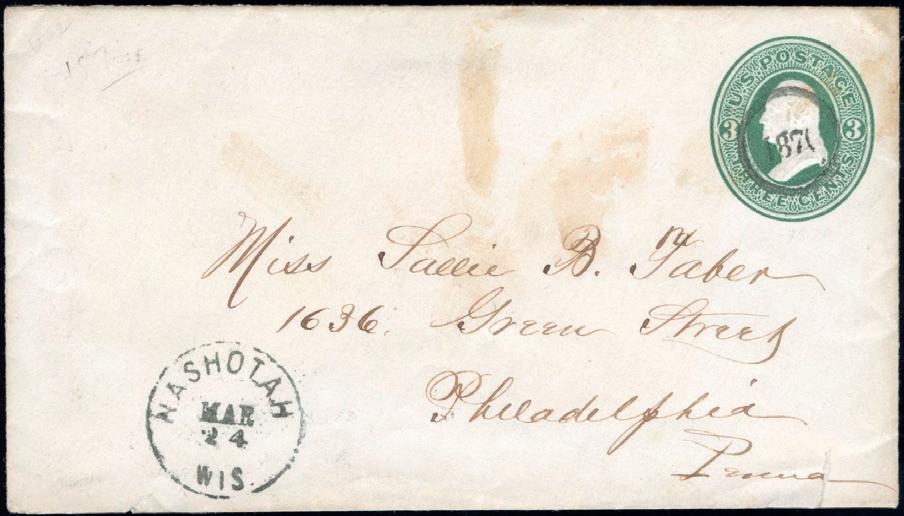 U.S. POSTAGE
3 3
THREE CENTS
187
Miss Sallie B. Taber
1636. Green Street
Philadelphia
Penna
NASHOTAH
MAR
24
WIS.